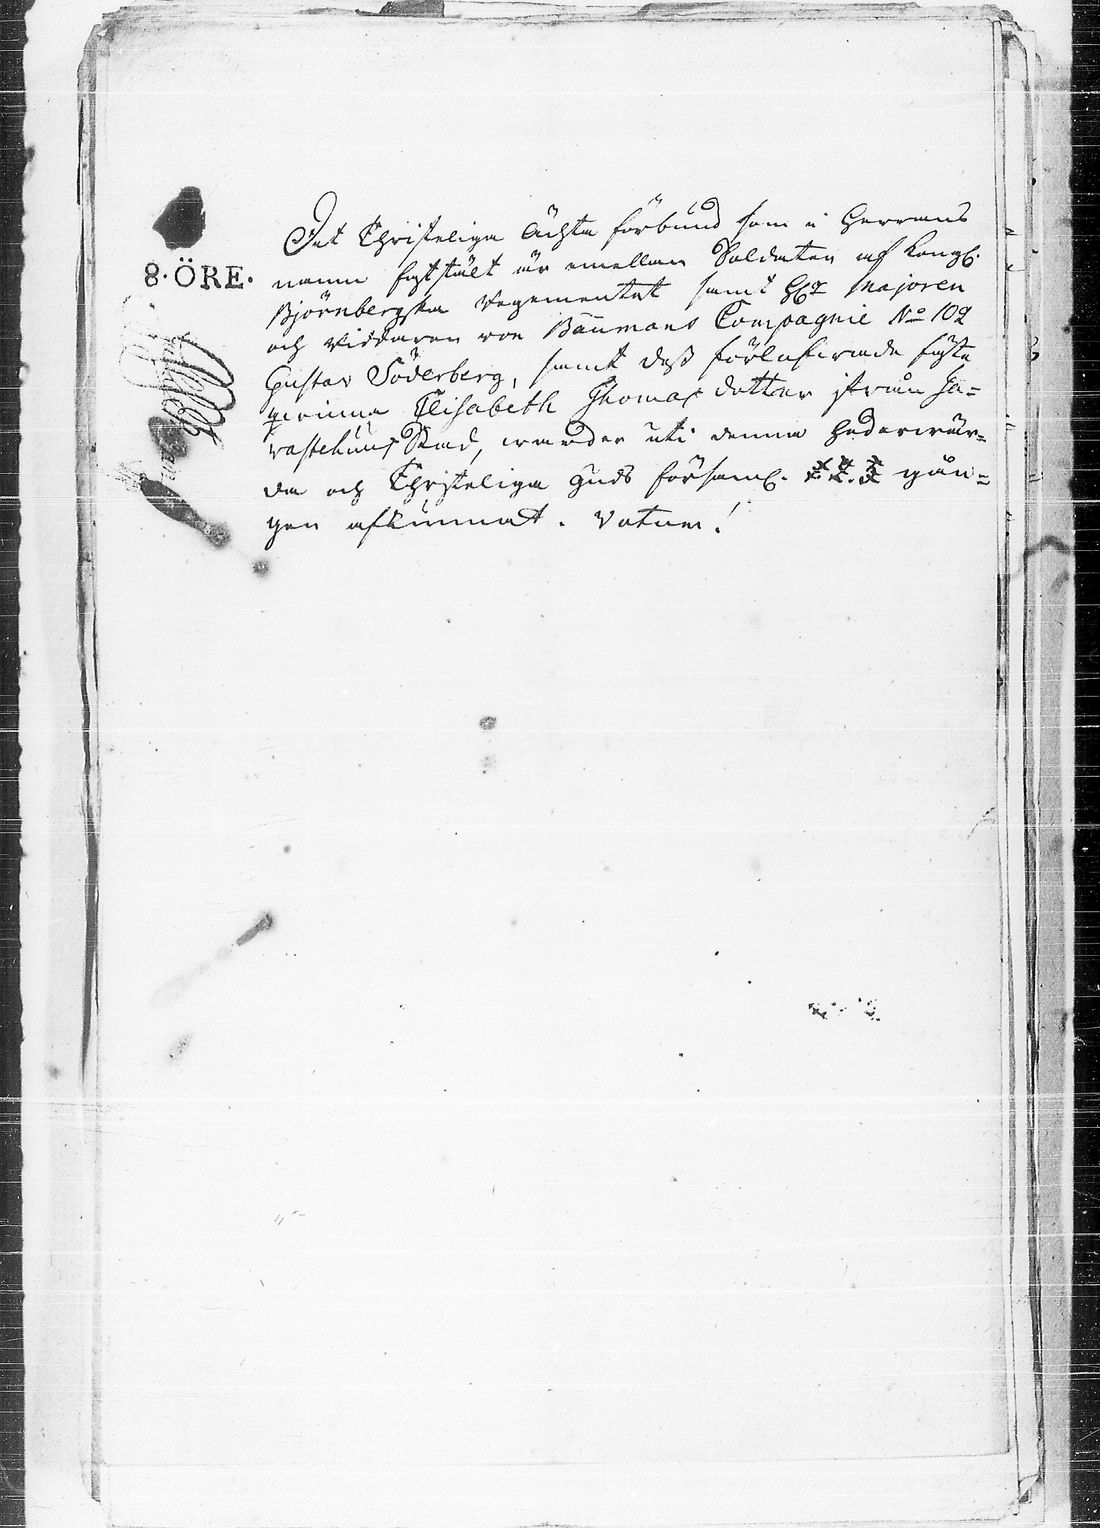 Det Christeliga Ächta förbund som i Herrans
namn fastStält är emellan Soldaten af Kongl.
8·ÖRE·
Björnebergska Regementet samt H:r Majoren
och Riddaren von Baumans Compagnie No 102
Gustav Söderberg, samt dess förlofvade fäste
qvinna Elisabeth Thomas dotter ifrån Ta-
vastehuus Stad, warder uti denna Hedervär-
da och Christeliga Guds församl. gån-
gen afkunnat. Votum!